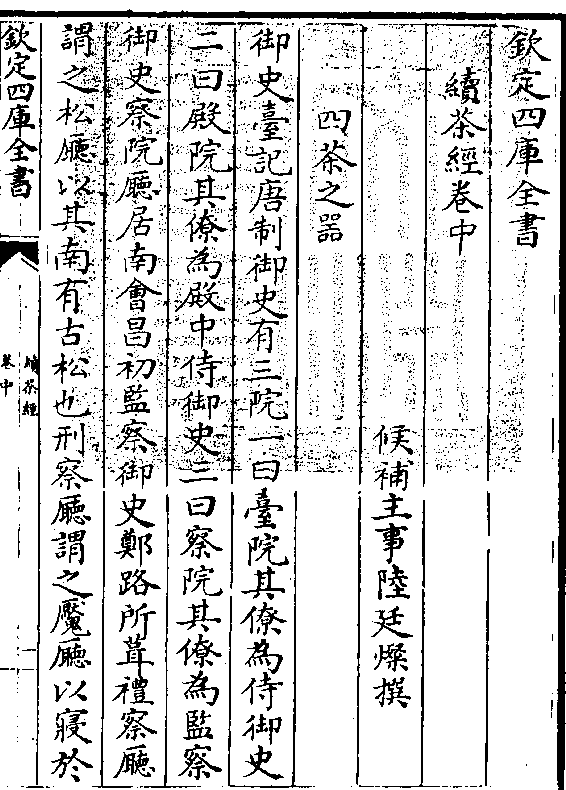 欽定四庫全書
續茶經卷中
候補主事陸廷燦撰
四茶之器
御史臺記唐制御史有三院一曰臺院其僚為侍御史
二曰殿院其僚為殿中侍御史三曰察院其僚為監察
御史察院廳居南會昌初監察御史鄭路所葺禮察廳
謂之松廳以其南有古松也刑察廳謂之魘廳以寢於
欽定四庫全書
續茶經
卷中